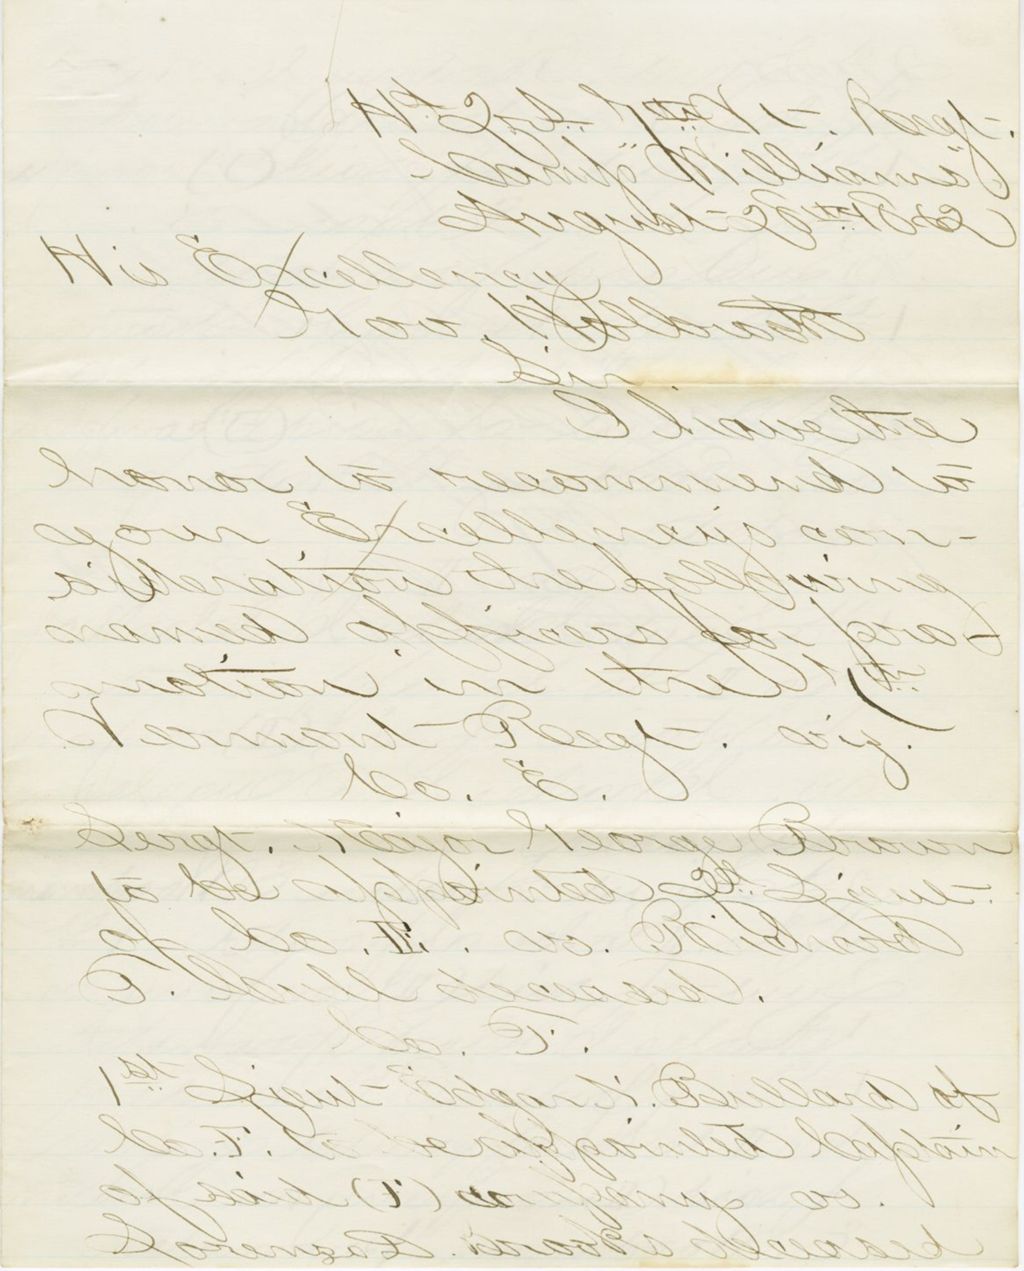 Hd. Qrs. 7th Vt. Regt.
Camp "Williams"
August 28th 1862
His Excellency
Gov. Holbrook
Sir
I have the
honor to recommend to
your Excellency's con-
sideration the following
named officers for pro-
motion in the 7th
Vermont Regt. viz.
Co. E.
Sergt. Major George Brown
to be appointed 2d. Lieut.
of Co. E. vs. Richard
T. Cull deceased.
Co. F.
1st Lieut Edgar N. Bullard of
Co. F. to be appointed Captain
of said (F) company vs.
Lorenzo deceased